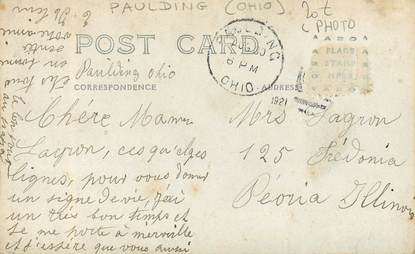 PAULDING (OHIO)
20t
( PHOTO
POST CARD
PAULDING
6 PM
OHIO.
1921
AZO
PLACE
STAMP
HERE
Paulding Ohio
CORRESPONDENCE
ADDRESS
Chére Maman
Gagnon, ces quelques
lignes, pour vous donner
un signe de vie, j'ai
un tres bon temps et
je me porte à merveille
et j'espère que vous aussi
Mrs Gagnon
125 Frédonia
Péoria Illinois